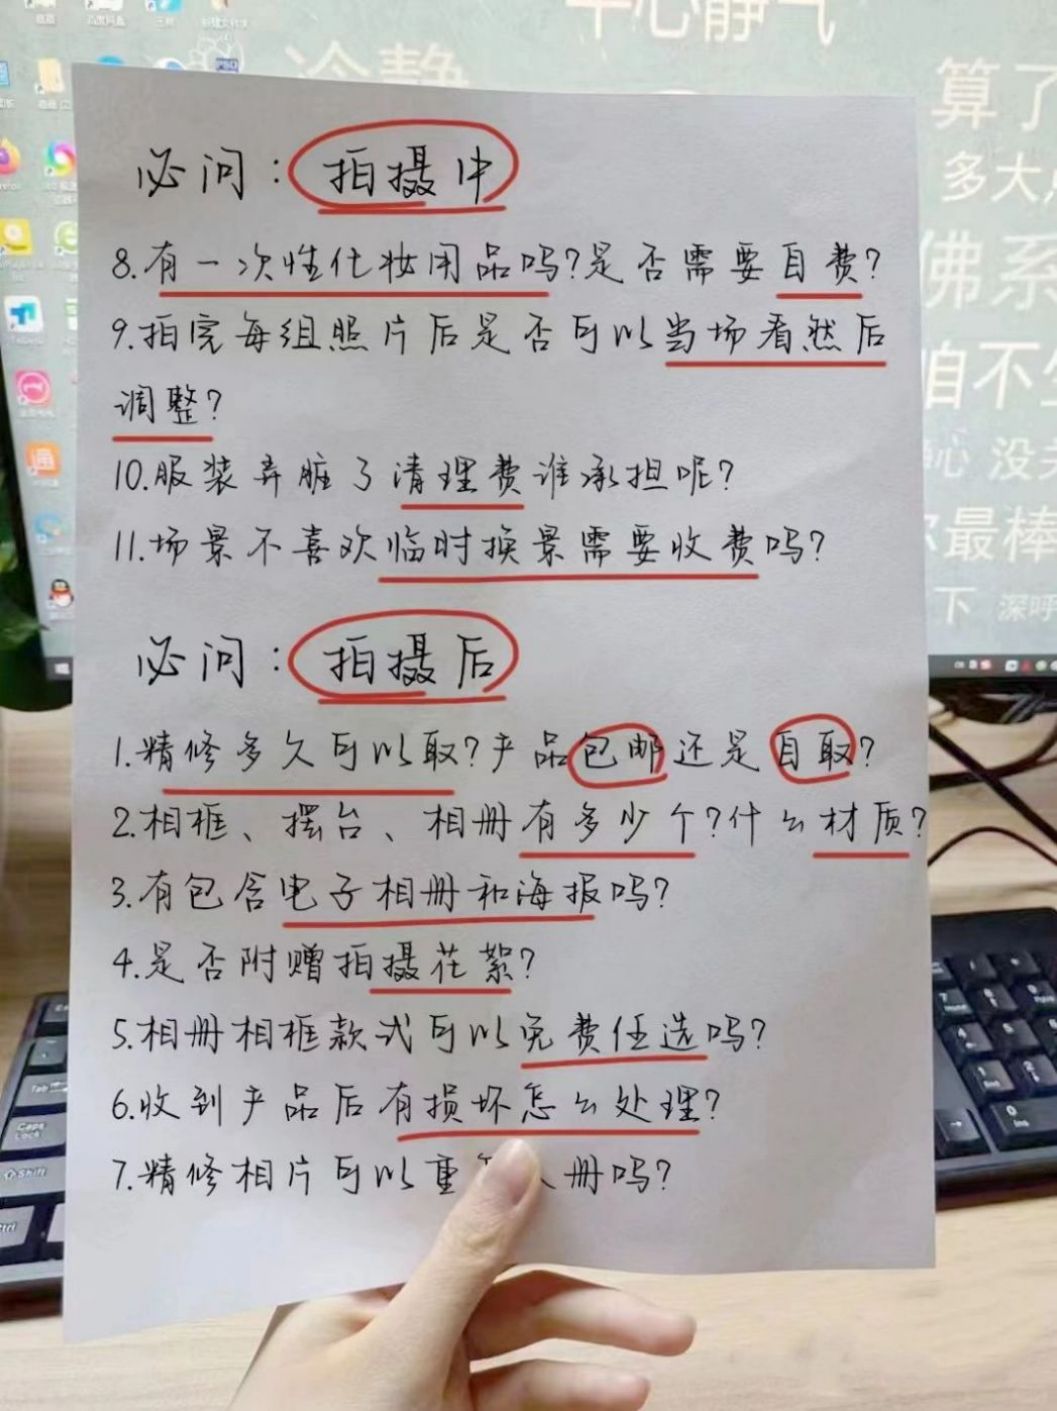 平心静气
冷静
算了
多大
佛系
咱不
心 没
最棒
下 深呼
必问：拍摄中
8.有一次性化妆用品吗?是否需要自费?
9.拍完每组照片后是否可以当场看然后
调整?
10.服装弄脏了清理费谁承担呢?
11.场景不喜欢临时换景需要收费吗?
必问：拍摄后
1.精修多久可以取?产品包邮还是自取?
2.相框、摆台、相册有多少个?什么材质?
3.有包含电子相册和海报吗?
4.是否附赠拍摄花絮?
5.相册相框款式可以免费任选吗?
6.收到产品后有损坏怎么处理?
7.精修相片可以重 册吗?